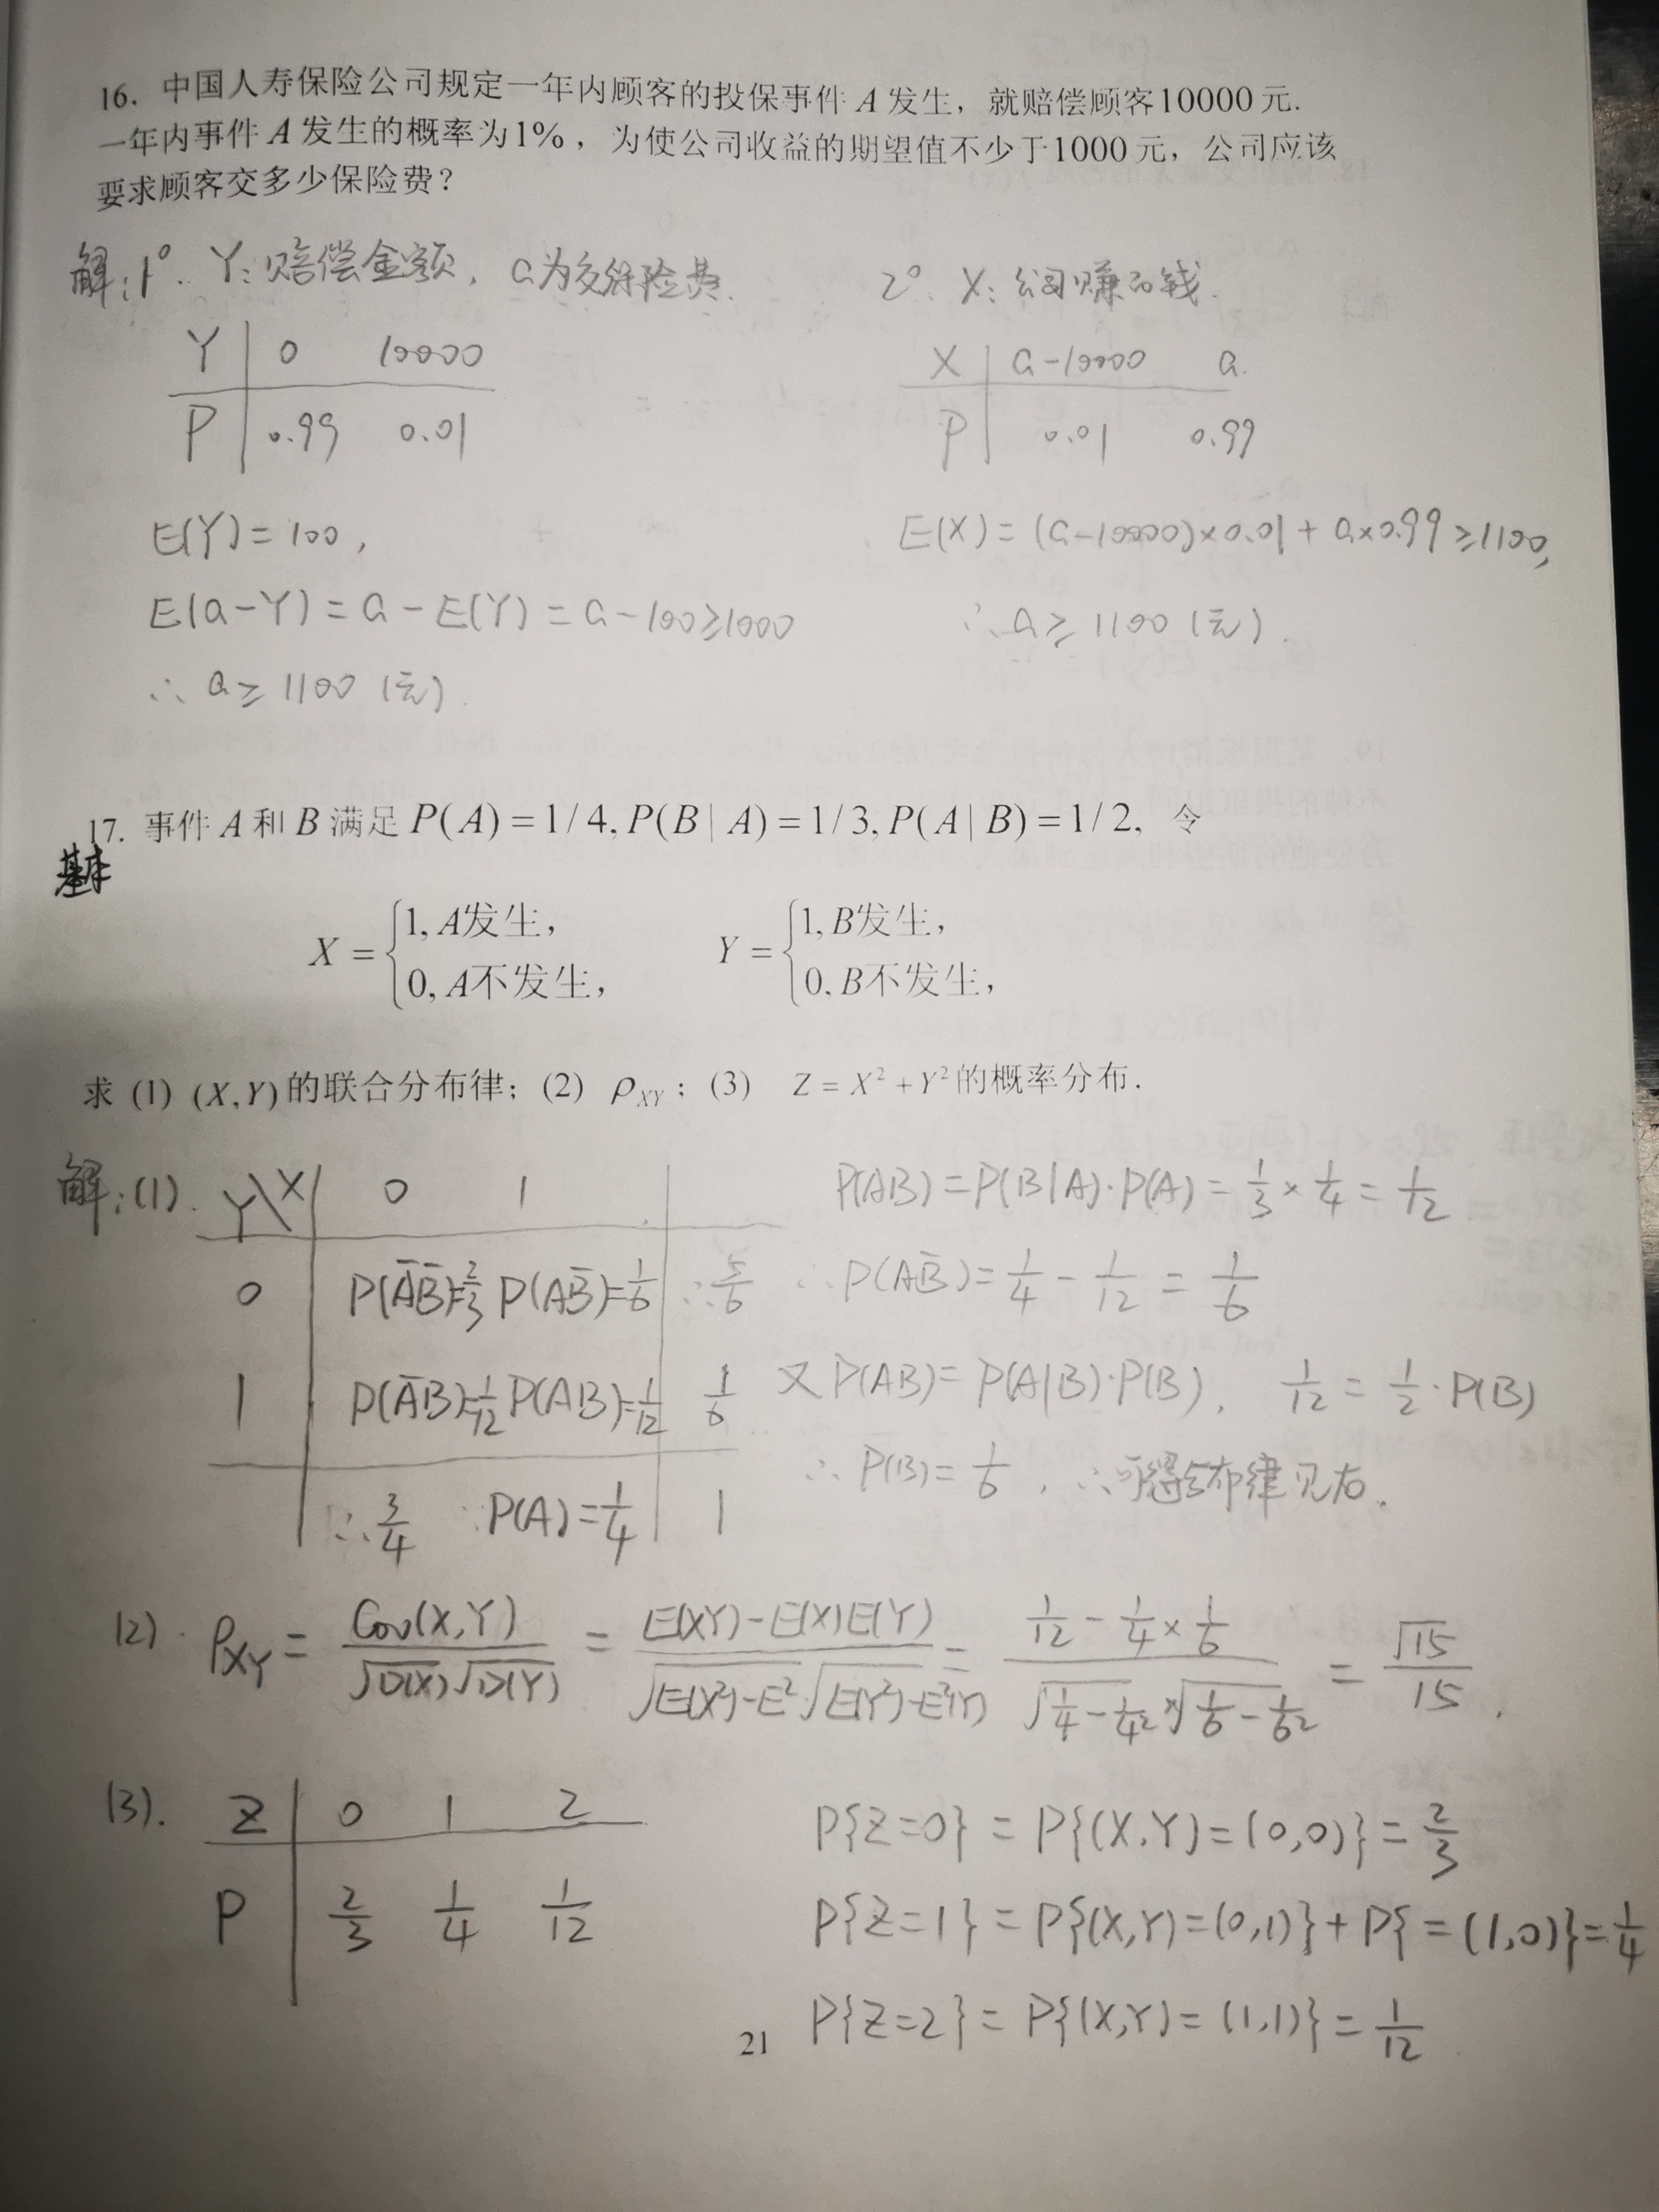 16. 中国人寿保险公司规定一年内顾客的投保事件 A 发生，就赔偿顾客10000元.
一年内事件 A 发生的概率为1%，为使公司收益的期望值不少于1000元，公司应该
要求顾客交多少保险费？
解：1°. Y：赔偿金额，a为交保险费.
Y 0 10000
P 0.99 0.01
E(Y)=100，
E(a-Y)=a-E(Y)=a-100≥1000
∴ a≥1100（元）.
2°. X：公司赚的钱.
X a-10000 a.
P 0.01 0.99
E(X)=(a-10000)×0.01+a×0.99≥1100,
∴ a≥1100（元）.
17. 事件 A 和 B 满足 P(A)=1/4, P(B|A)=1/3, P(A|B)=1/2, 令
基本
X={1, A发生,
0, A不发生,
Y={1, B发生,
0, B不发生,
求 (1) (X,Y)的联合分布律；(2) ρ_XY；(3) Z=X²+Y²的概率分布.
解：(1). Y\X 0 1
0 P(A̅B̅)=2/3 P(AB̅)=1/6 ∴5/6
1 P(A̅B)=1/12 P(AB)=1/12 1/6
∴3/4 P(A)=1/4 1
P(AB)=P(B|A)·P(A)=1/3×1/4=1/12
∴P(AB̅)=1/4-1/12=1/6
又P(AB)=P(A|B)·P(B)，1/12=1/2·P(B)
∴P(B)=1/6，∴可得分布律见右.
(2). ρ_XY=Cov(X,Y)/(√D(X)√D(Y))=(E(XY)-E(X)E(Y))/(√(E(X²)-E²)·√(E(Y²)-E²(Y)))=(1/12-1/4×1/6)/(√(1/4-1/4²)×√(1/6-1/6²))=√15/15.
(3). Z 0 1 2
P 2/3 1/4 1/12
P{Z=0}=P{(X,Y)=(0,0)}=2/3
P{Z=1}=P{(X,Y)=(0,1)}+P{=(1,0)}=1/4
P{Z=2}=P{(X,Y)=(1,1)}=1/12
21